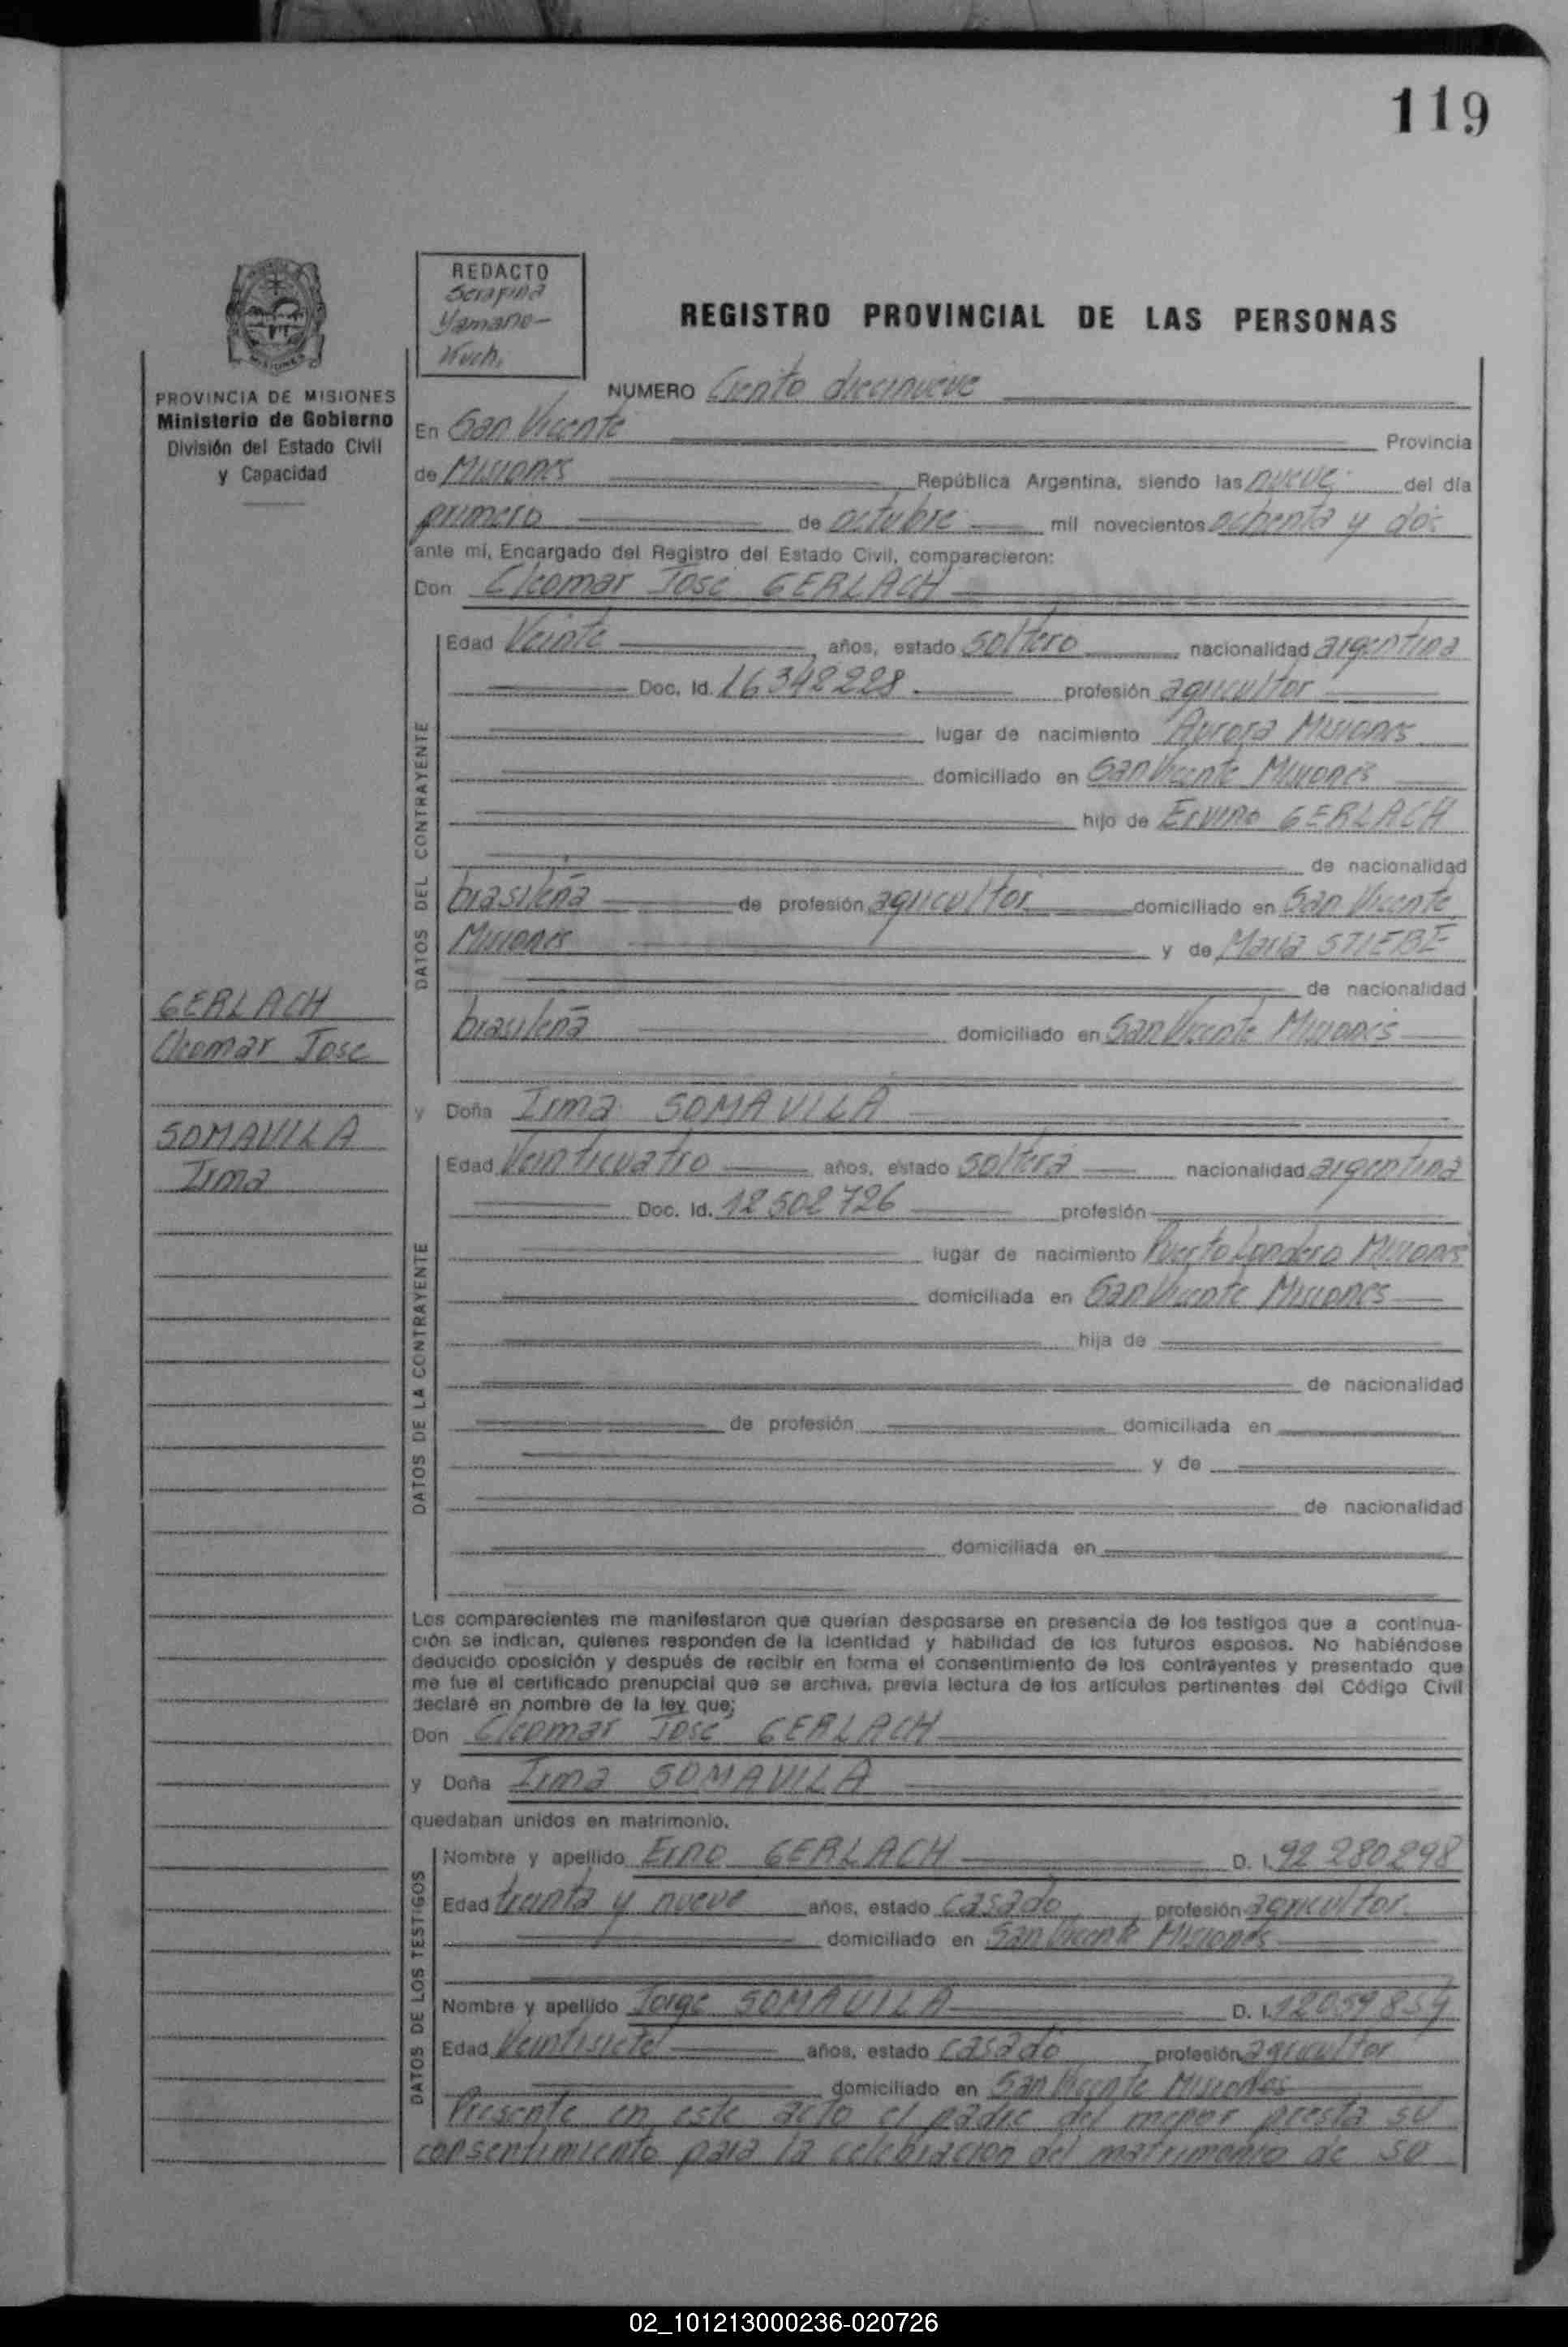 119
REDACTO
Serafina
Yamano-
Wuch.
REGISTRO PROVINCIAL DE LAS PERSONAS
PROVINCIA DE MISIONES
Ministerio de Gobierno
División del Estado Civil
y Capacidad
NUMERO Ciento diecinueve
En San Vicente Provincia
de Misiones República Argentina, siendo las nueve del día
primero de octubre mil novecientos ochenta y dos
ante mí, Encargado del Registro del Estado Civil, comparecieron:
Don Cleomar José GERLACH
DATOS DEL CONTRAYENTE
Edad Veinte años, estado soltero nacionalidad argentina
Doc. Id. 16342228 profesión agricultor
lugar de nacimiento Aurora Misiones
domiciliado en San Vicente Misiones
hijo de Ervino GERLACH
de nacionalidad
brasileña de profesión agricultor domiciliado en San Vicente
Misiones y de María STIEBE
de nacionalidad
brasileña domiciliado en San Vicente Misiones
GERLACH
Cleomar José
SOMAVILA
Irma
y Doña Irma SOMAVILA
DATOS DE LA CONTRAYENTE
Edad Veinticuatro años, estado soltera nacionalidad argentina
Doc. Id. 12502726 profesión
lugar de nacimiento Puerto Londero Misiones
domiciliada en San Vicente Misiones
hija de
de nacionalidad
de profesión domiciliada en
y de
de nacionalidad
domiciliada en
Los comparecientes me manifestaron que querían desposarse en presencia de los testigos que a continua-
ción se indican, quienes responden de la identidad y habilidad de los futuros esposos. No habiéndose
deducido oposición y después de recibir en forma el consentimiento de los contrayentes y presentado que
me fue el certificado prenupcial que se archiva, previa lectura de los artículos pertinentes del Código Civil
declaré en nombre de la ley que;
Don Cleomar José GERLACH
y Doña Irma SOMAVILA
quedaban unidos en matrimonio.
DATOS DE LOS TESTIGOS
Nombre y apellido Erno GERLACH D. I. 92280298
Edad treinta y nueve años, estado casado profesión agricultor
domiciliado en San Vicente Misiones
Nombre y apellido Jorge SOMAVILA D. I. 12059854
Edad Veintisiete años, estado casado profesión agricultor
domiciliado en San Vicente Misiones
Presente en este acto el padre del menor presta su
consentimiento para la celebración del matrimonio de su
02_101213000236-020726